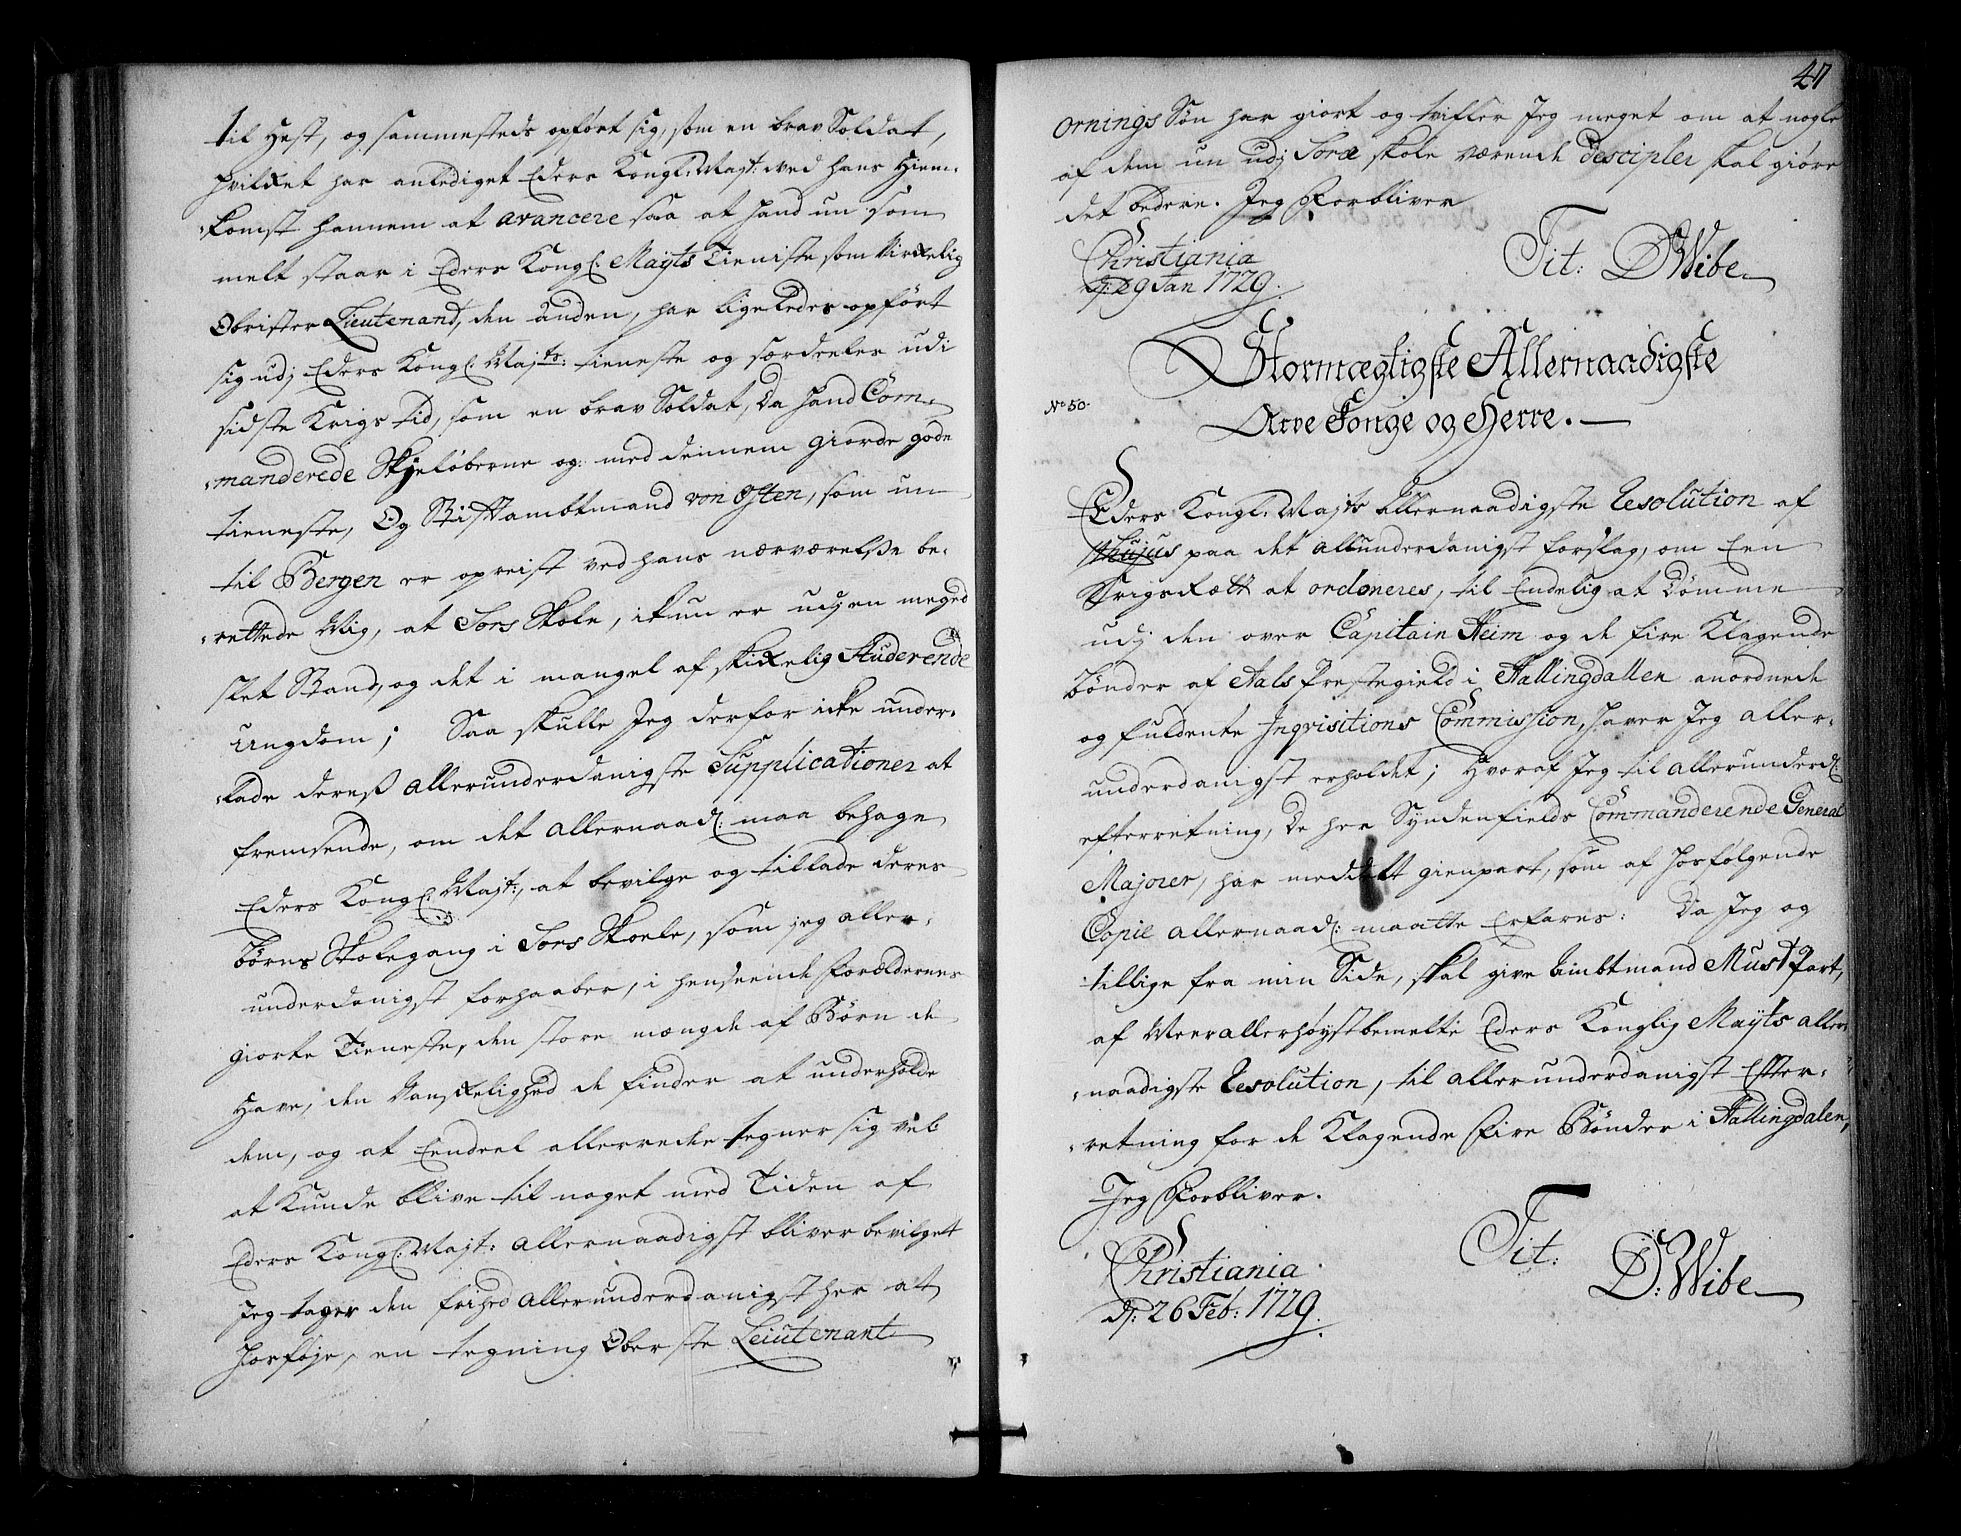 til Hest, og sammesteds opført sig, som en brav Soldat,
hvilket har anlediget Eders Kongl: Mayt: ved hans Hiem-
-komst hannem at avancere saa at hand nu som
melt staar i Eders Kongl: Mayts Tieniste som Virkelig
Obrister Lieutenand, den anden, har ligeledes opført
sig udj Eders Kongl: Majts: tieneste og særdeeles udi
sidste Krigs tid, som en brav Soldat, Da hand Com-
-manderede Skyeløberne og med dennem giorde gode
tieneste, Og Stiftambtmand von Østen, som nu
til Bergen er opreist ved hans nærværelse be-
-rettede Mig, at Sors Skole, ikun er udj en meged
slet Stand, og det i mangel af skikelig Studerende
Ungdom; Saa skulle Jeg derfor icke under-
-lade deres allerunderdanigste Supplicationer at
fremsende, om det allernaad: maa behage
Eders Kongl: Majt:, at bevilge og tillade deres
børns Skolegang i Sors Skoele, som jeg aller-
underdanigst forhaaber, i henseende Forældrenes
giorte Tieneste, den store mængde af Børn de
Have, den Vanskelighed de finder at underholde
dem, og at Eendeel allerrede tegner sig vel
at Kunde blive til noget med Tiden af
Eders Kongl: Majt: allernaadigst bliver bevilget
Jeg tager den frihed allerunderdanigst her at
hosføje, en tegning Oberste Leiutenant
47
Ornings Søn har giort og tvifler Jeg meget om at nogle
af dem nu udj Soræ skole værende descipler skal giøre
det bedere. Jeg Forbliver
Christiania
d: 29 Jan 1729. Tit: D Wibe
Stormægtigste Allernaadigste
No 50. Arve Konge og Herre.
Eders Kongl: Majts Allernaadigste Resolution af
hujus paa det allunderdanigst forslag, om Een
Krigsrætt at ordoneres, til Endelig at Dømme
udj den over Capitain Heim og de fire Klagende
bønder af Aals Prestegield i Hallingdallen anordnede
og fuldente Inqvisitions Commission, haver Jeg aller-
underdanigst erholdet; Hvoraf Jeg til allerunderd:
efterretning, De her Syndenfields Commanderende General
Majorer, har meddelt gienpart, som af hosfølgende
Copie allernaad: maatte Erfares: Da Jeg og
tillige fra min Side, skal give Ambtmand Must Part,
af Meerallerhøystbemelte Eders Konglig Mayts aller-
-naadigste Resolution, til allerunderdanigst Efter-
-retning for de Klagende Fire Bønder i Hallingdalen,
Jeg Forbliver.
Christiania
d: 26 Feb: 1729. Tit: D: Wibe